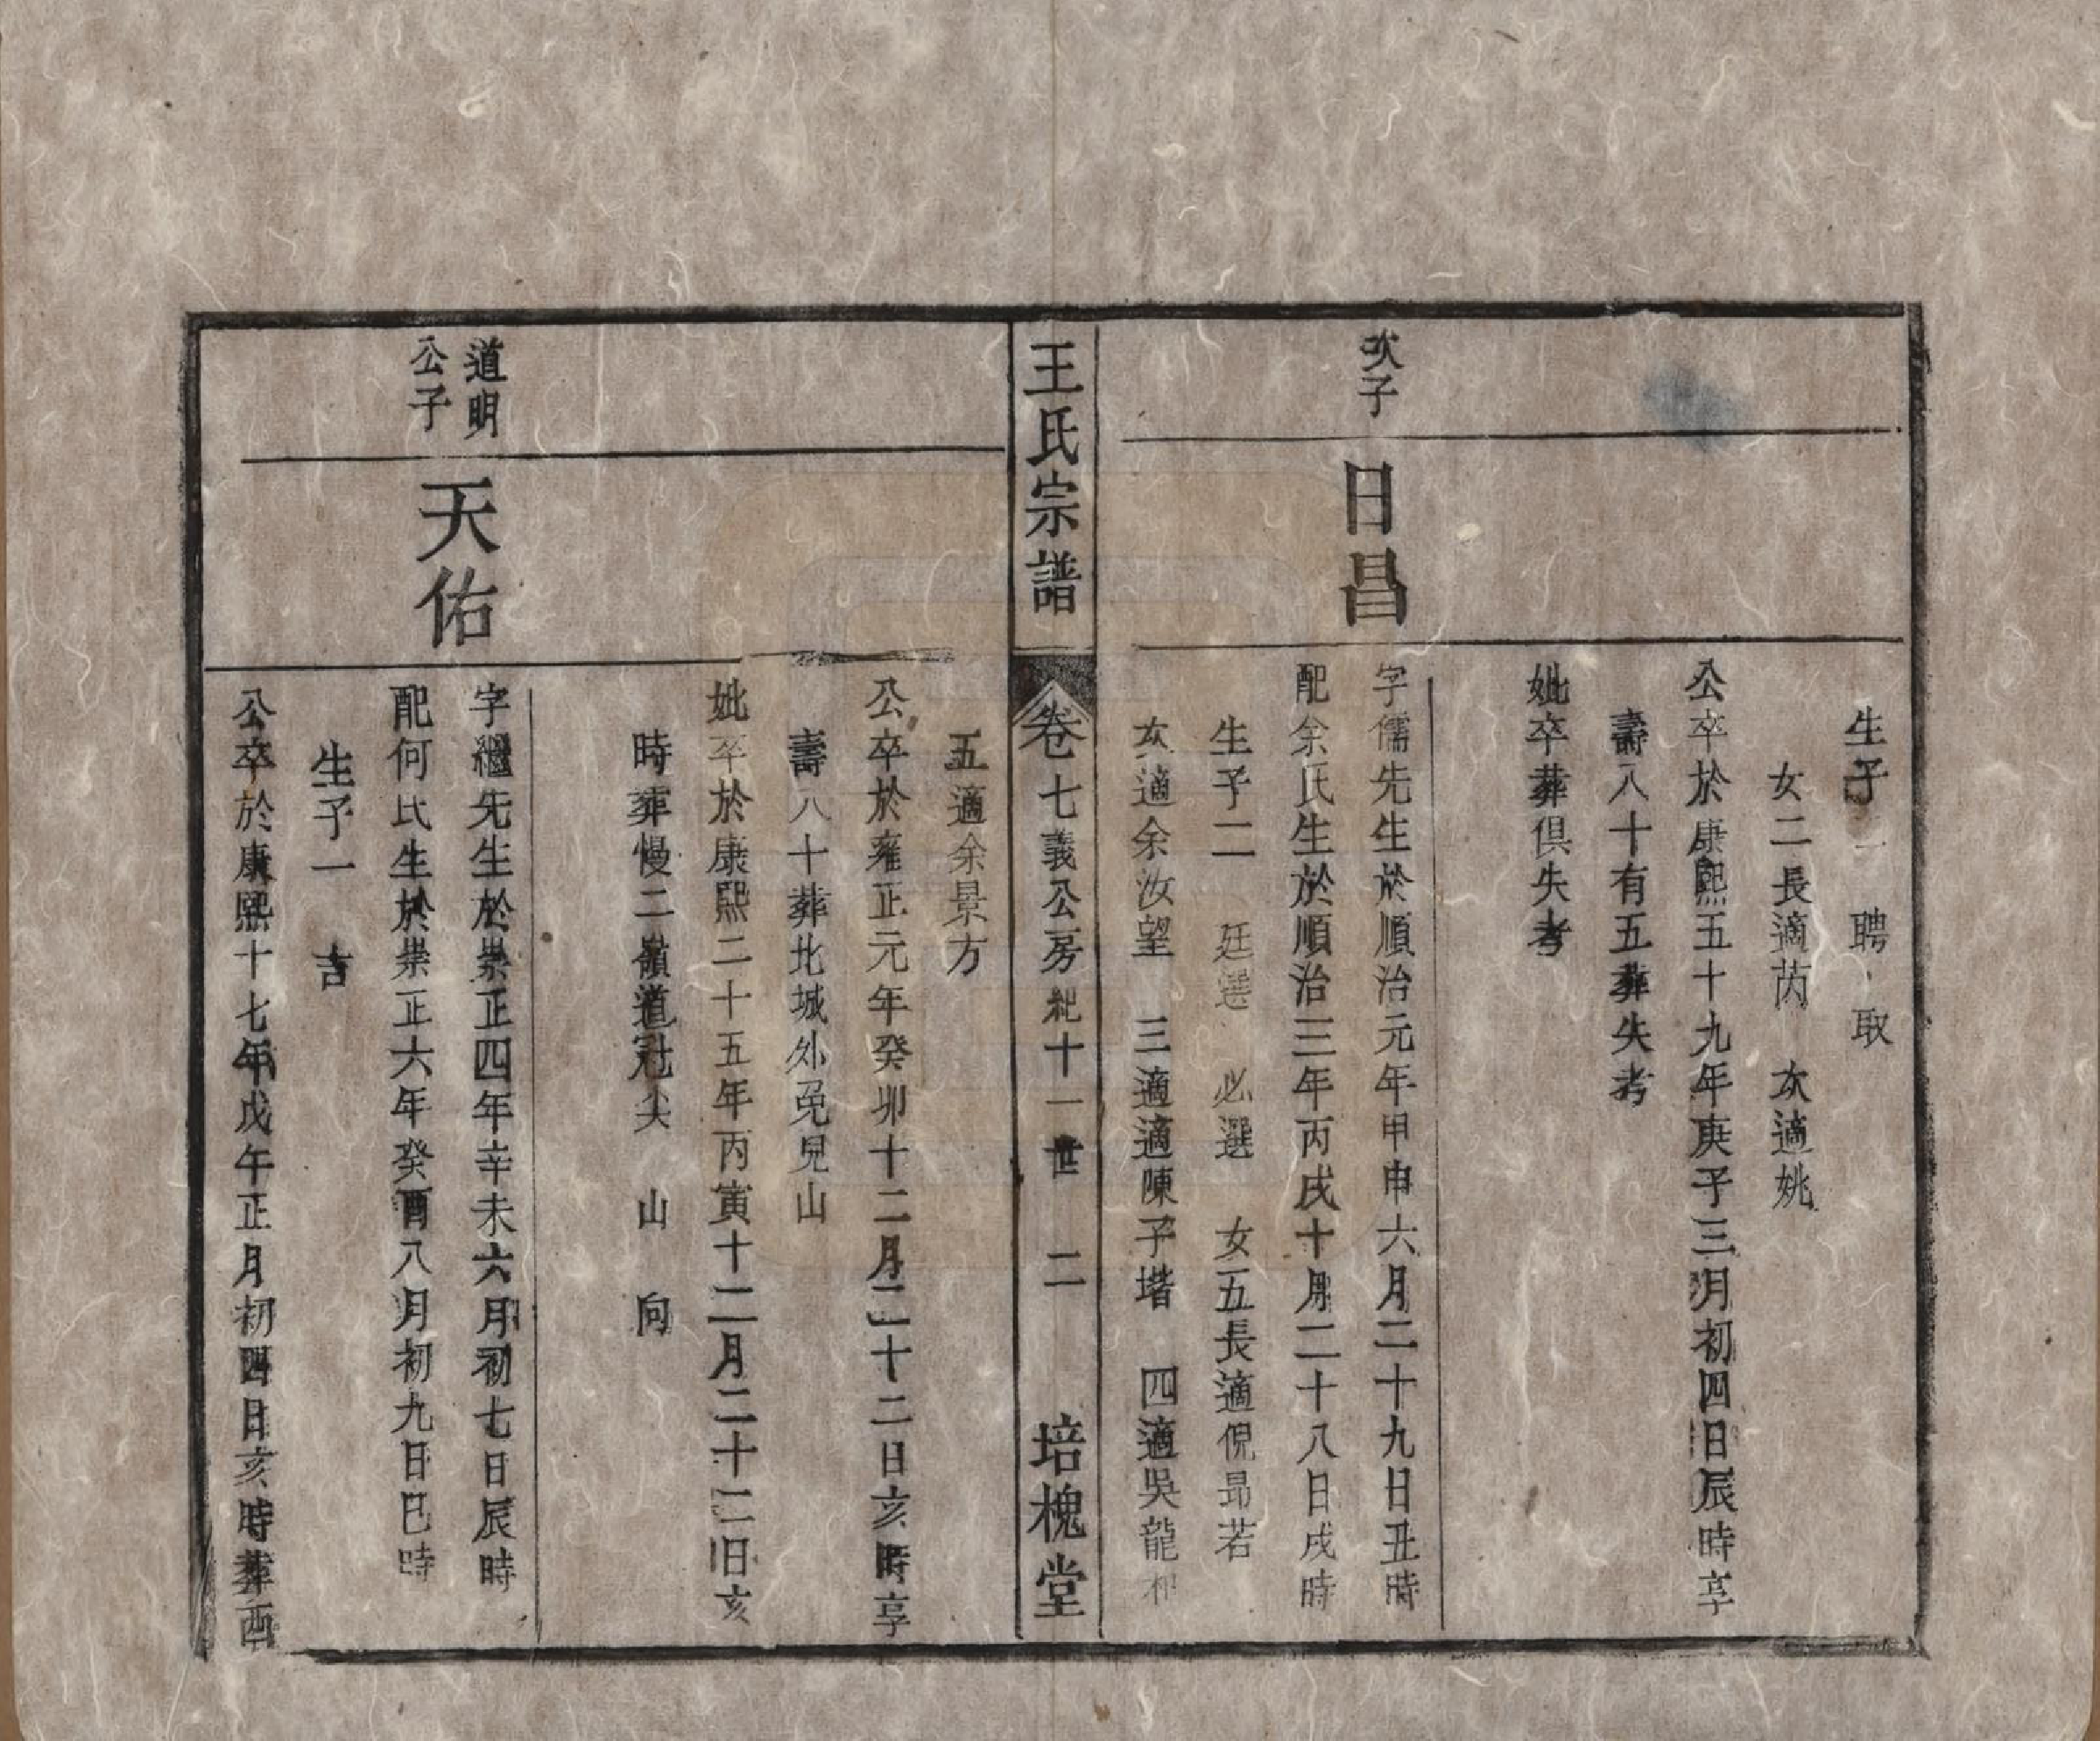 生子一　聘　取
女二長適芮　次適姚
公卒於康熙五十九年庚子三月初四日辰時享
壽八十有五葬失考
妣卒葬俱失考
次子
日昌
字儒先生於順治元年甲申六月二十九日丑時
配余氏生於順治三年丙戌十月二十八日戌時
生子二　廷選　必選　女五長適倪昂若
次適余汝望　三適適陳子堦　四適吳龍和
王氏宗譜
卷七義公房紀十一世　二
培槐堂
五適余景方
公卒於雍正元年癸卯十二月二十二日亥時享
壽八十葬北城外兎兒山
妣卒於康熙二十五年丙寅十二月二十二日亥
時葬慢二嶺道冠尖　山　向
道明
公子
天佑
字繼先生於崇正四年辛未六月初七日辰時
配何氏生於崇正六年癸酉八月初九日巳時
生子一　吉
公卒於康熙十七年戊午正月初四日亥時葬西